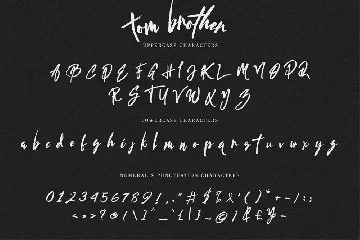 tom brother
UPPERCASE CHARACTERS
A B C D E F G H I J K L M N O P Q
R S T U V W X Y Z
LOWERCASE CHARACTERS
a b c d e f g h i j k l m n o p q r s t u v w x y z
NUMERALS PUNCTUATION CHARACTERS
0 1 2 3 4 5 6 7 8 9 ! , . " # $ % & ' ( ) * + - / : ;
< = > ? @ ( \ ) ^ _ ` { | } ~ © ] £ ¥ -